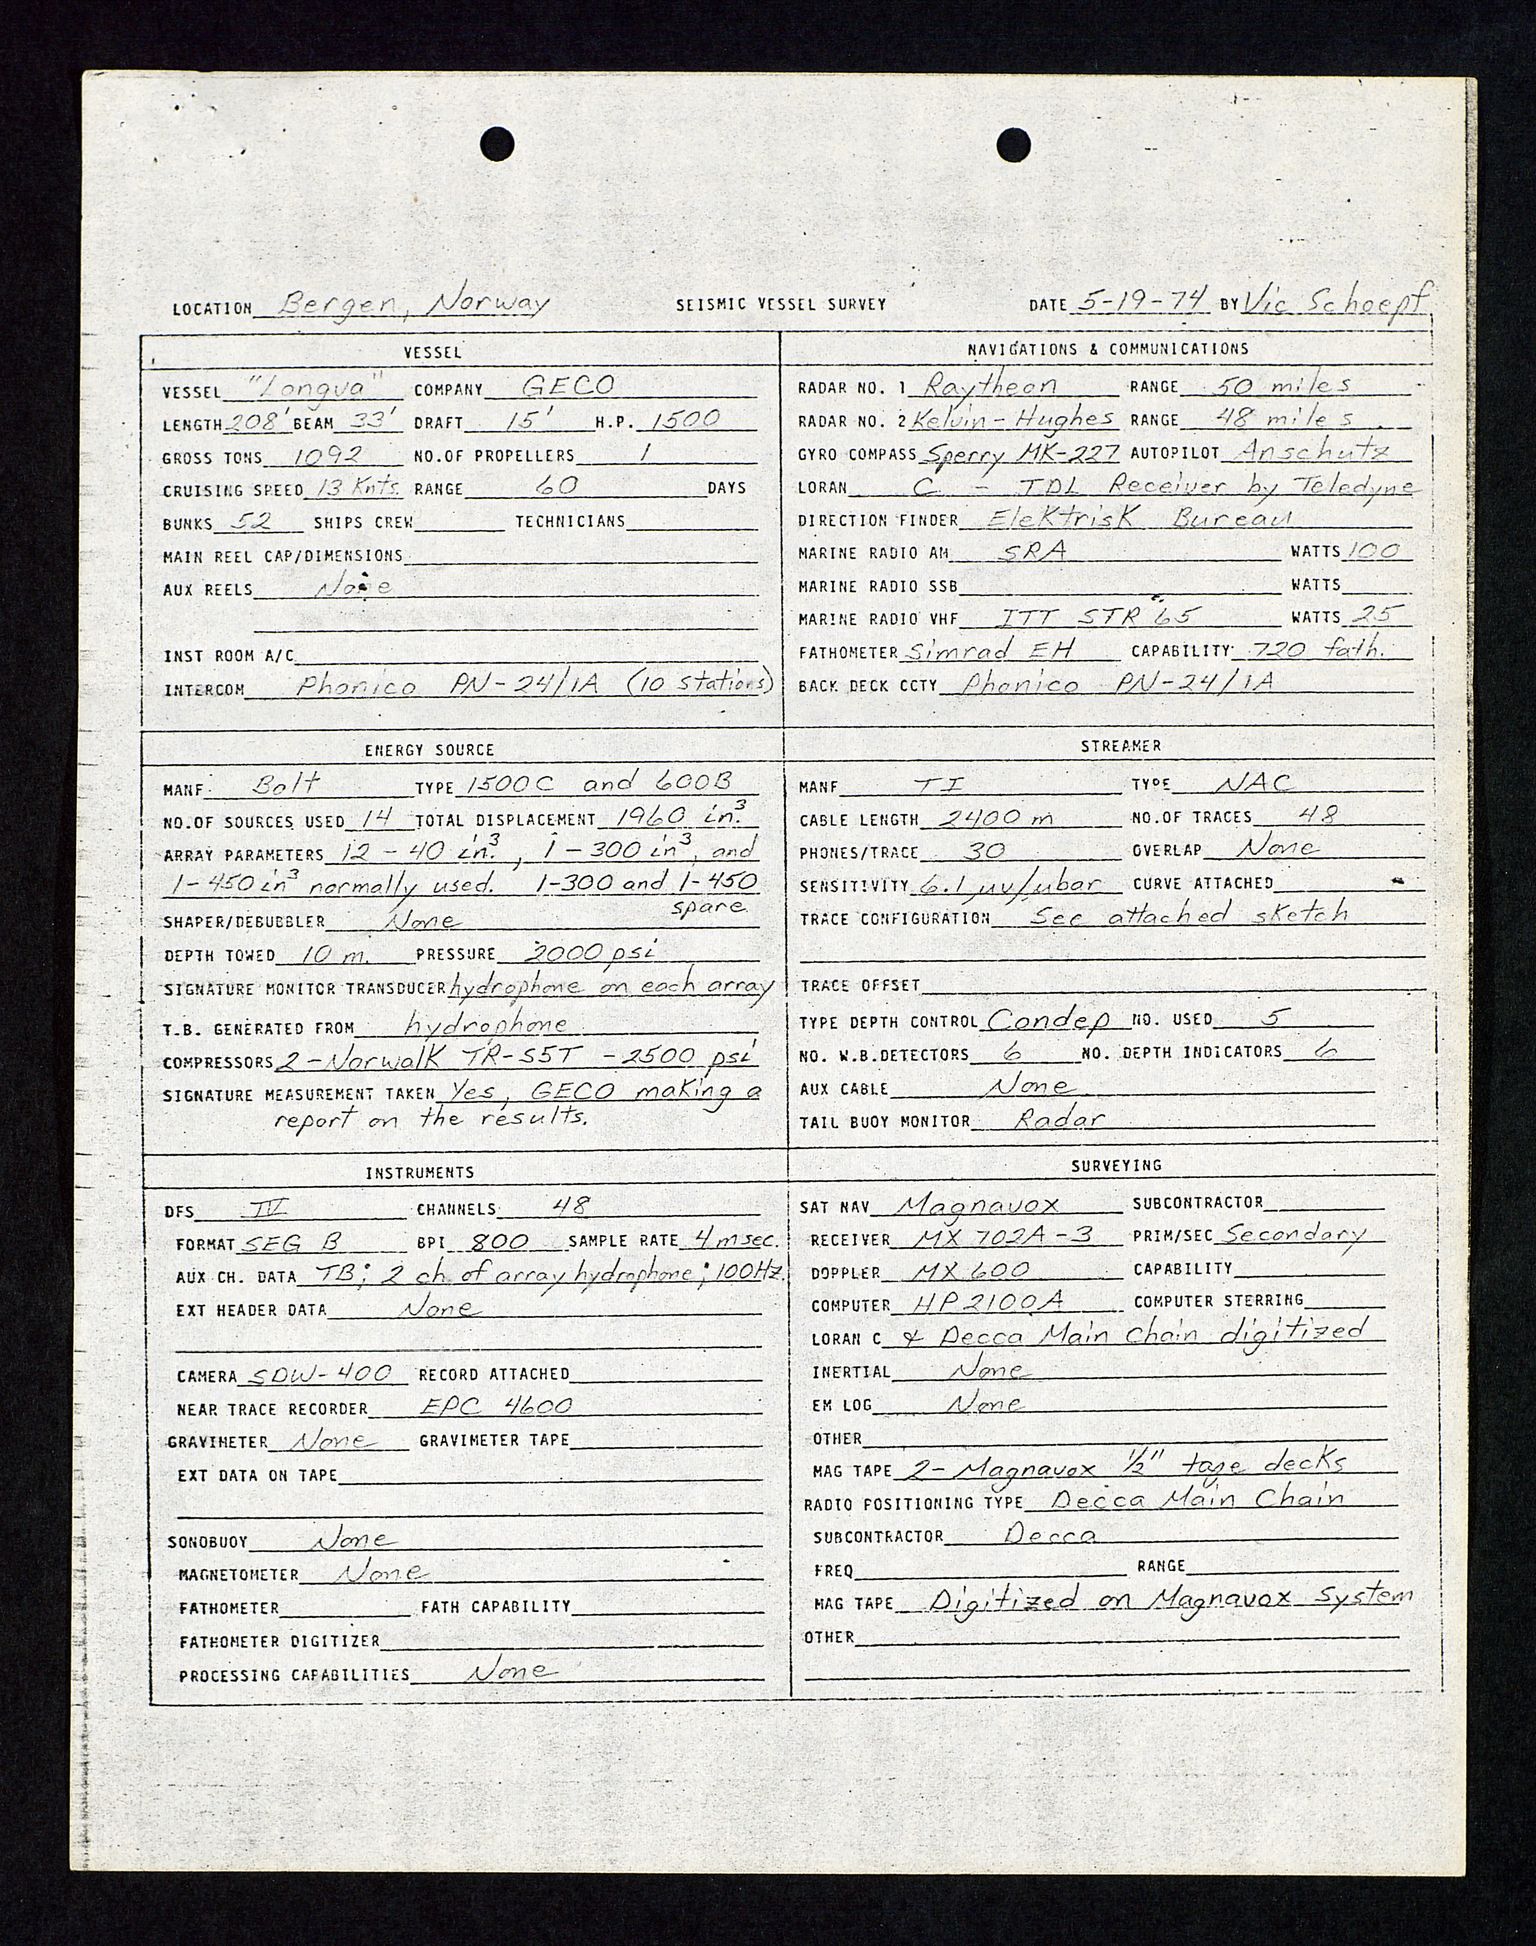 LOCATION Bergen, Norway SEISMIC VESSEL SURVEY DATE 5-19-74 BY Vic Schoepf
VESSEL
VESSEL "Longva" COMPANY GECO
LENGTH 208' BEAM 33' DRAFT 15' H.P. 1500
GROSS TONS 1092 NO.OF PROPELLERS 1
CRUISING SPEED 13 Knts. RANGE 60 DAYS
BUNKS 52 SHIPS CREW TECHNICIANS
MAIN REEL CAP/DIMENSIONS
AUX REELS None
INST ROOM A/C
INTERCOM Phonico PN-24/1A (10 stations)
NAVIGATIONS & COMMUNICATIONS
RADAR NO. 1 Raytheon RANGE 50 miles
RADAR NO. 2 Kelvin-Hughes RANGE 48 miles
GYRO COMPASS Sperry MK-227 AUTOPILOT Anschutz
LORAN C - TDL Receiver by Teledyne
DIRECTION FINDER Elektrisk Bureau
MARINE RADIO AM SRA WATTS 100
MARINE RADIO SSB WATTS
MARINE RADIO VHF ITT STR 65 WATTS 25
FATHOMETER Simrad EH CAPABILITY 720 fath.
BACK DECK CCTY Phonico PN-24/1A
ENERGY SOURCE
MANF. Bolt TYPE 1500C and 600B
NO.OF SOURCES USED 14 TOTAL DISPLACEMENT 1960 in.³
ARRAY PARAMETERS 12 - 40 in.³, 1 - 300 in³, and
1-450 in³ normally used. 1-300 and 1-450
spare.
SHAPER/DEBUBBLER None
DEPTH TOWED 10 m. PRESSURE 2000 psi
SIGNATURE MONITOR TRANSDUCER hydrophone on each array
T.B. GENERATED FROM hydrophone
COMPRESSORS 2-Norwalk TR-S5T - 2500 psi
SIGNATURE MEASUREMENT TAKEN Yes, GECO making a
report on the results.
STREAMER
MANF TI TYPE NAC
CABLE LENGTH 2400 m NO.OF TRACES 48
PHONES/TRACE 30 OVERLAP None
SENSITIVITY 6.1 uv/ubar CURVE ATTACHED
TRACE CONFIGURATION See attached sketch
TRACE OFFSET
TYPE DEPTH CONTROL Condep NO. USED 5
NO. W.B.DETECTORS 6 NO. DEPTH INDICATORS 6
AUX CABLE None
TAIL BUOY MONITOR Radar
INSTRUMENTS
DFS IV CHANNELS 48
FORMAT SEG B BPI 800 SAMPLE RATE 4 msec.
AUX CH. DATA TB; 2 ch. of array hydrophone; 100Hz.
EXT HEADER DATA None
CAMERA SDW-400 RECORD ATTACHED
NEAR TRACE RECORDER EPC 4600
GRAVIMETER None GRAVIMETER TAPE
EXT DATA ON TAPE
SONOBUOY None
MAGNETOMETER None
FATHOMETER FATH CAPABILITY
FATHOMETER DIGITIZER
PROCESSING CAPABILITIES None
SURVEYING
SAT NAV Magnavox SUBCONTRACTOR
RECEIVER MX 702A-3 PRIM/SEC Secondary
DOPPLER MX 600 CAPABILITY
COMPUTER HP 2100A COMPUTER STERRING
LORAN C & Decca Main Chain digitized
INERTIAL None
EM LOG None
OTHER
MAG TAPE 2- Magnavox ½" tape decks
RADIO POSITIONING TYPE Decca Main Chain
SUBCONTRACTOR Decca
FREQ RANGE
MAG TAPE Digitized on Magnavox System
OTHER